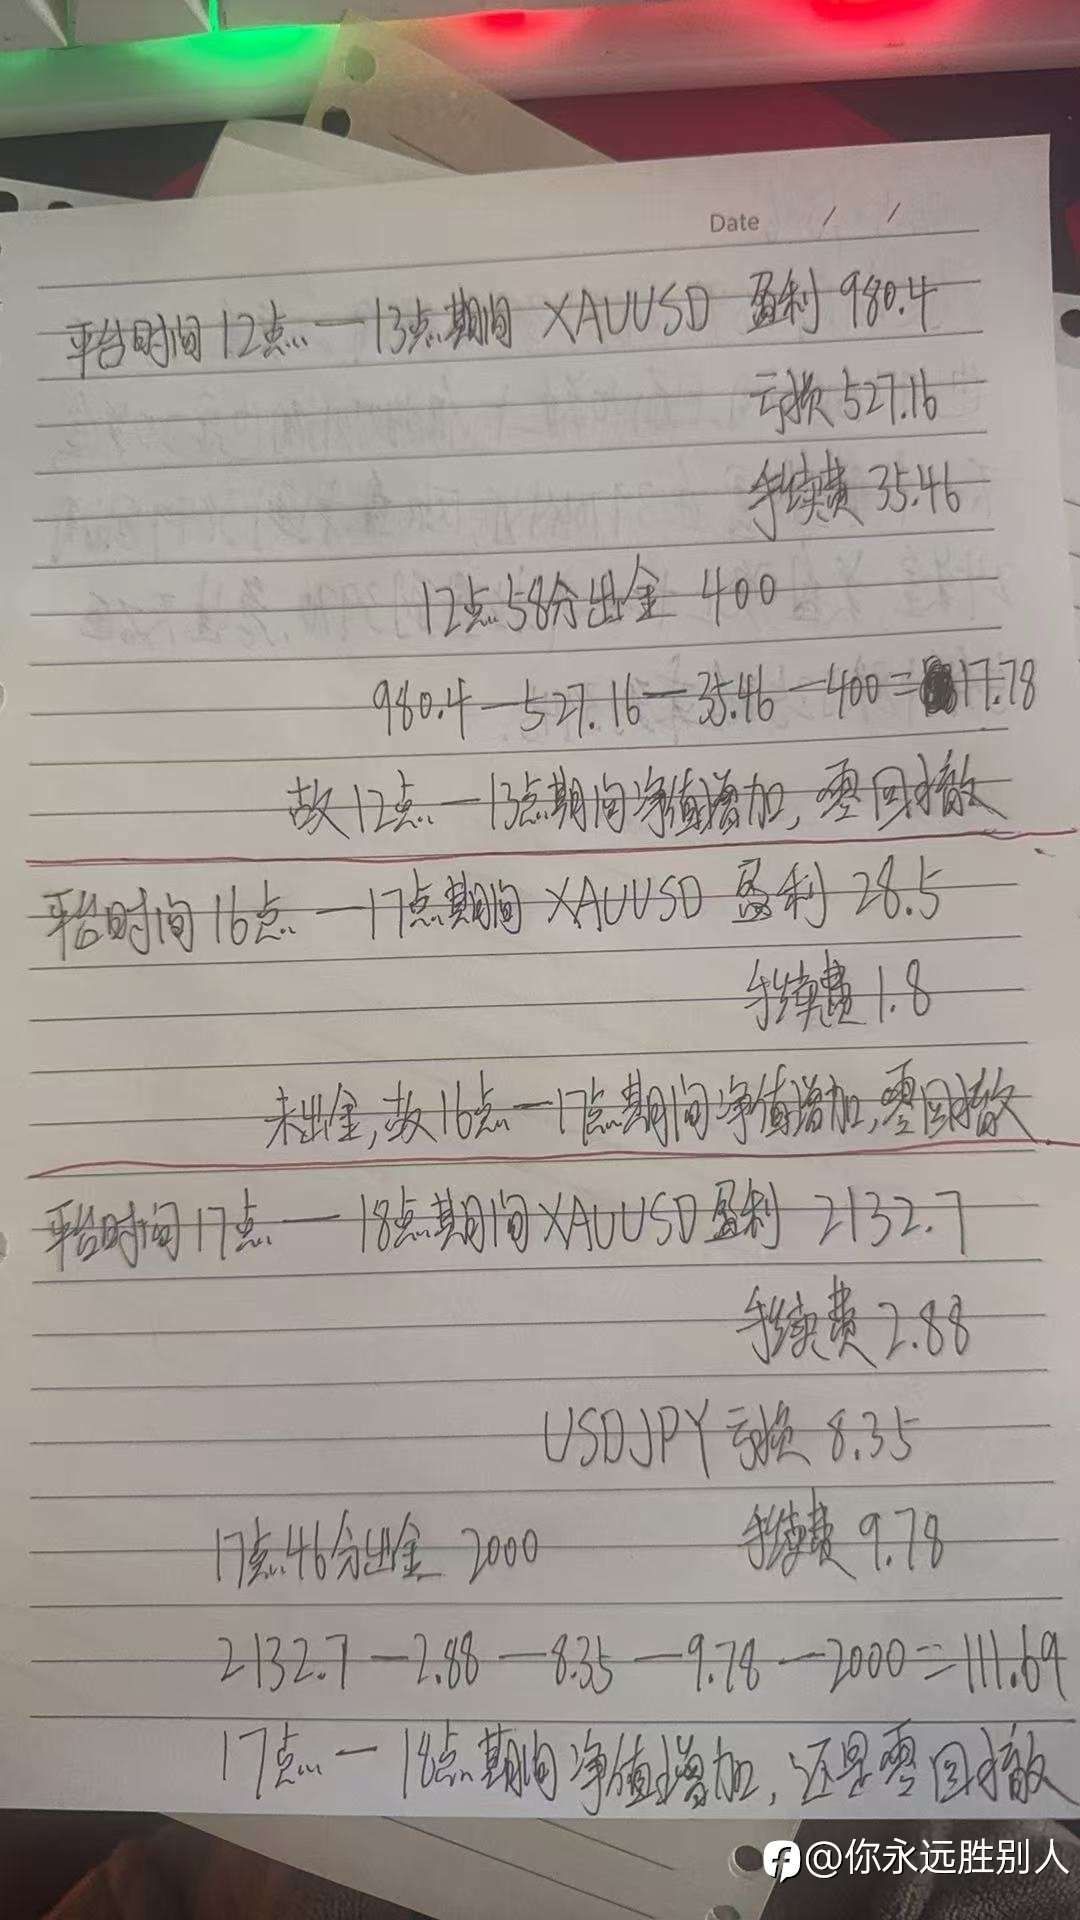 Date / /
平台时间12点—13点期间 XAUUSD 盈利 980.4
亏损 527.16
手续费 35.46
12点58分出金 400
980.4—527.16—35.46—400=17.78
故12点—13点期间净值增加,零回撤
平台时间16点—17点期间 XAUUSD 盈利 28.5
手续费 1.8
未出金,故16点—17点期间净值增加,零回撤
平台时间17点—18点期间XAUUSD盈利 2132.7
手续费 2.88
USDJPY 亏损 8.35
17点46分出金 2000 手续费 9.78
2132.7—2.88—8.35—9.78—2000=111.69
17点—18点期间净值增加,还是零回撤
@你永远胜别人